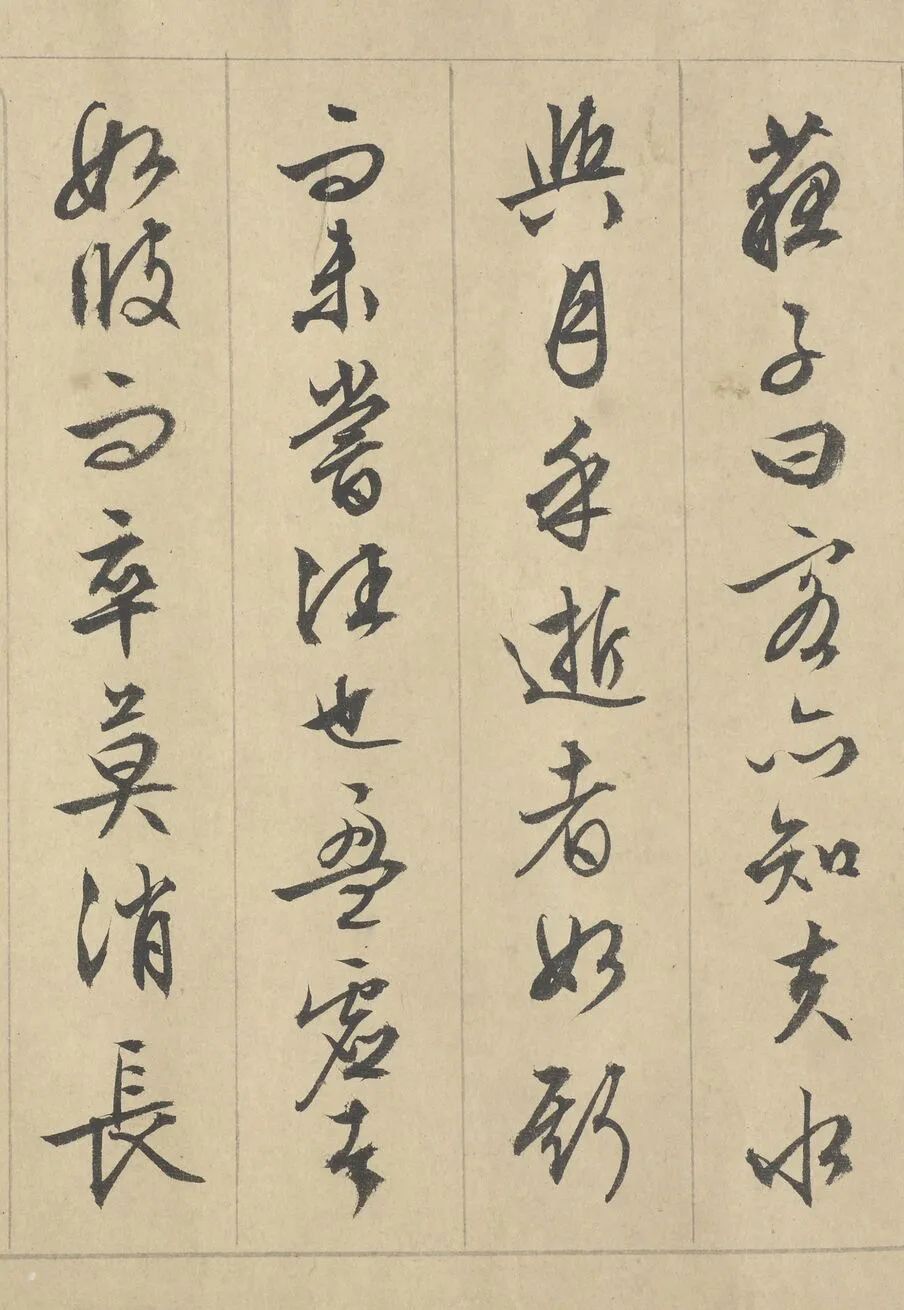 蘇子曰客亦知夫水
與月乎逝者如斯
而未嘗往也盈虛者
如彼而卒莫消長